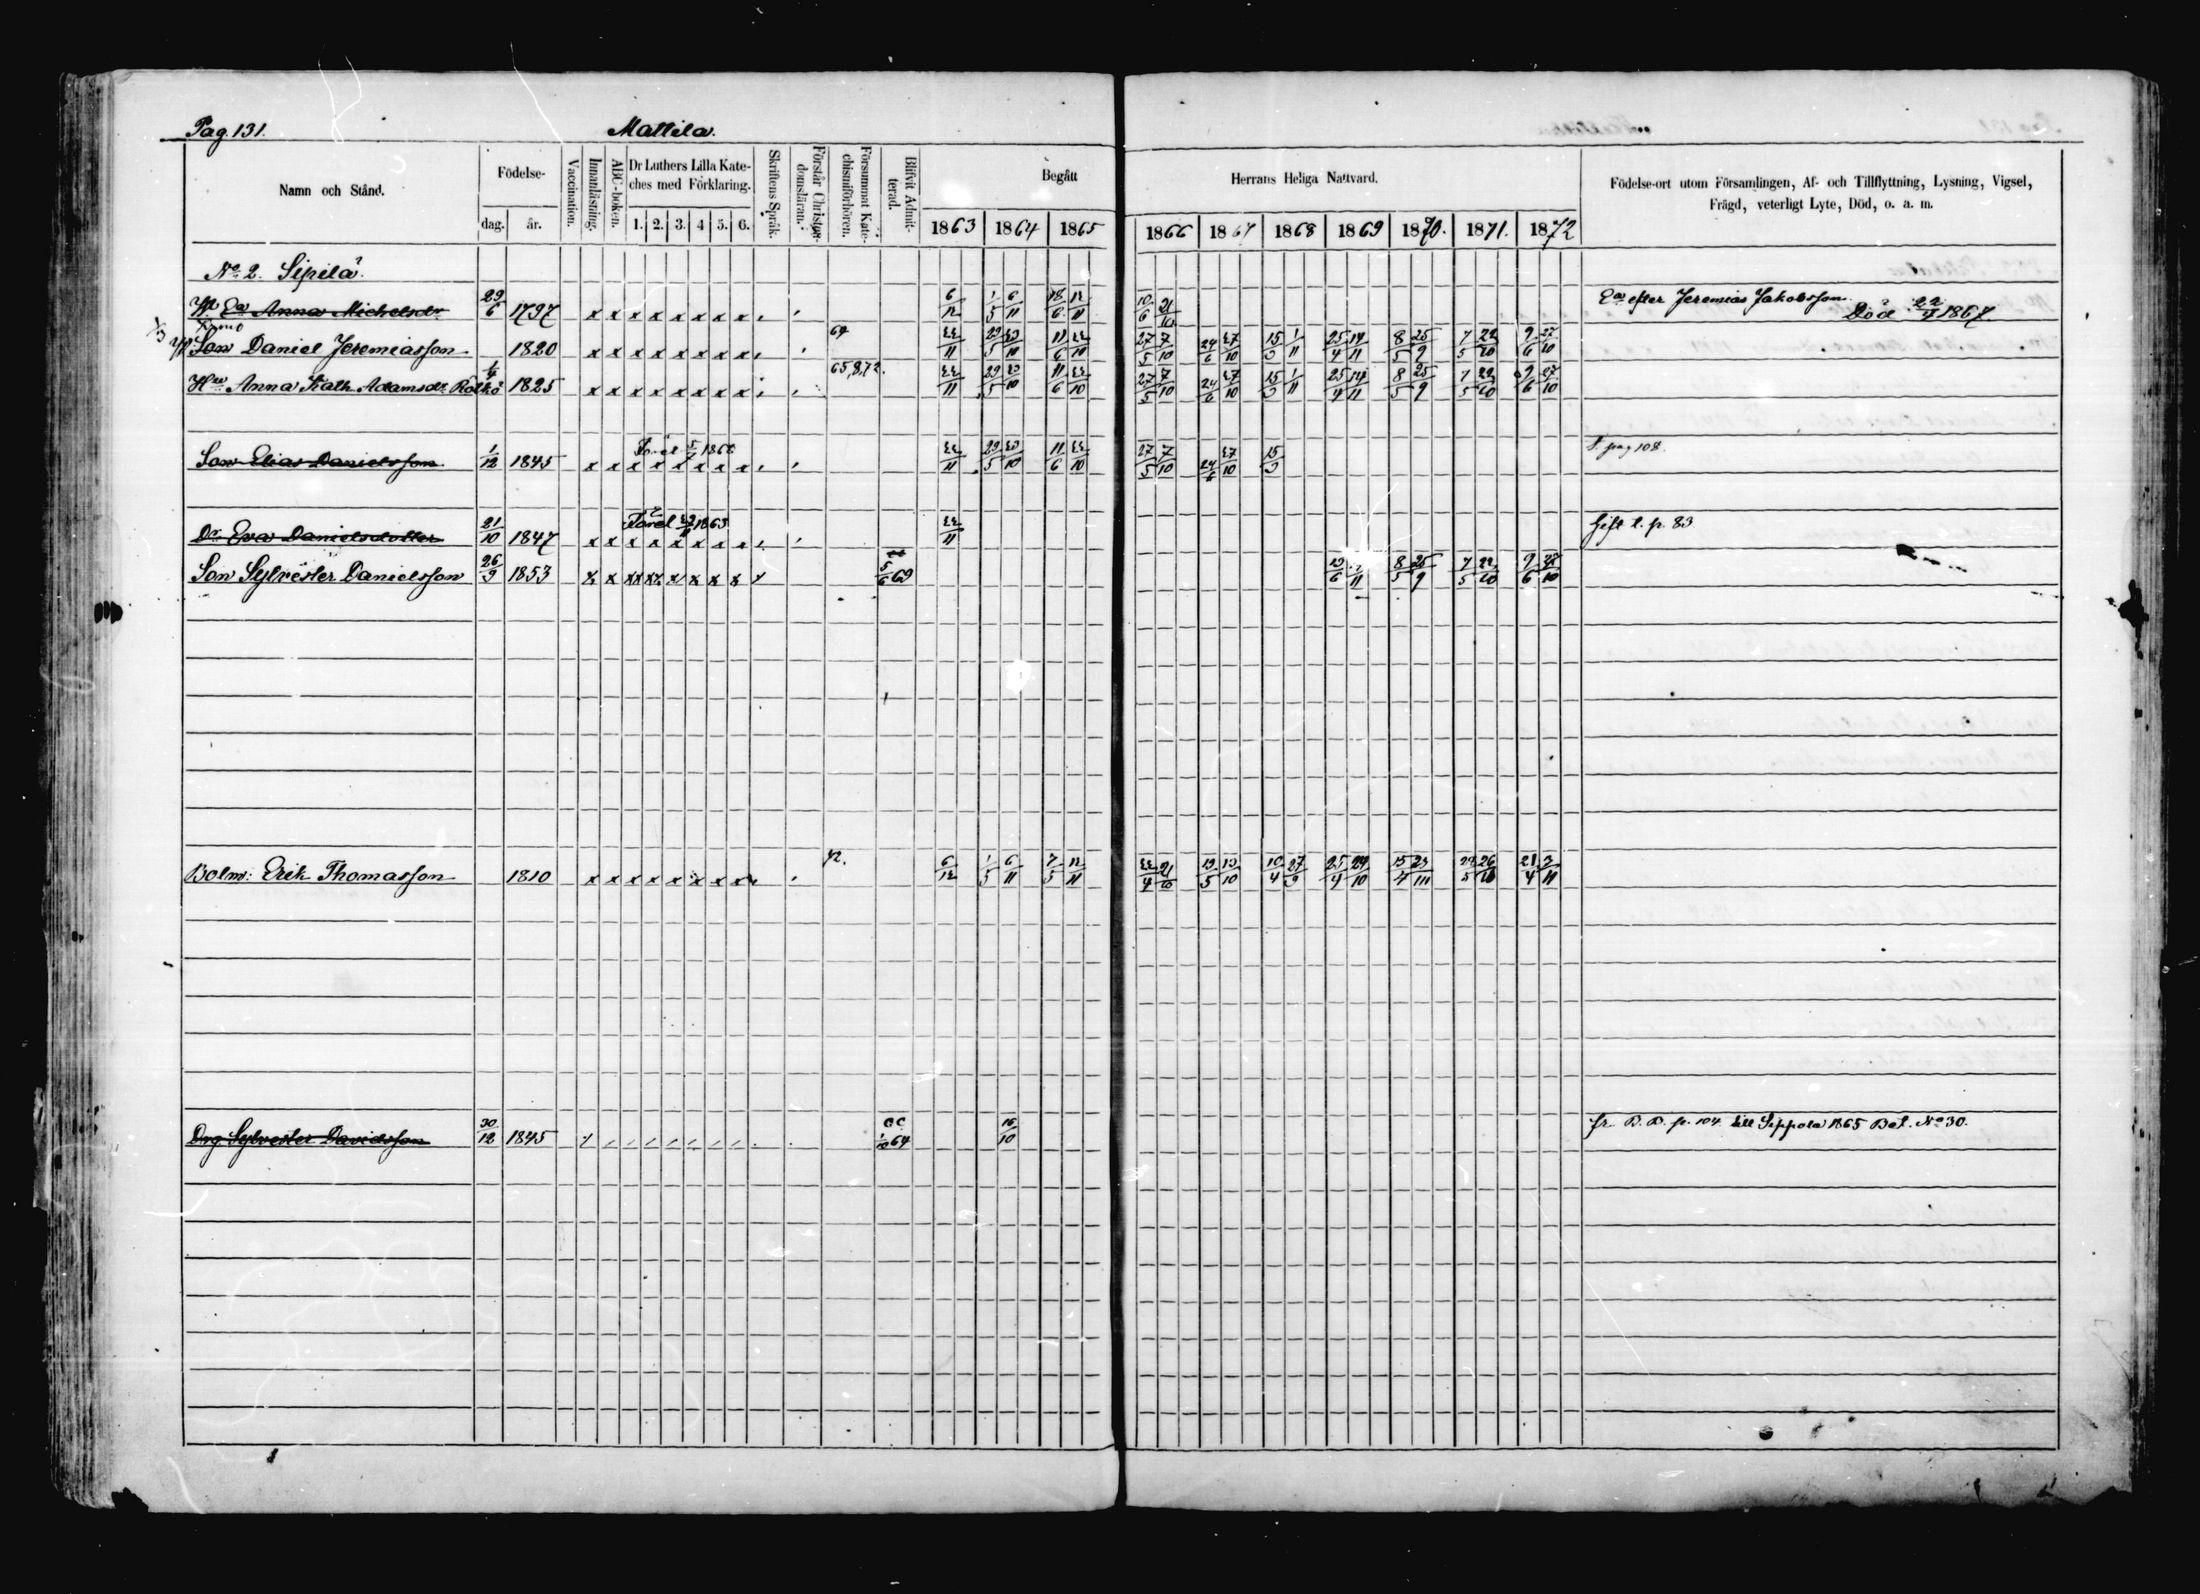 Pag. 131.
Mattila.
Namn och Stånd.
Födelse-
dag. år.
Vaccination.
Innanläsning.
ABC-boken.
Dr Luthers Lilla Kate-
ches med Förklaring.
1. 2. 3. 4 5. 6.
Skriftens Språk.
Förstår Christen-
domsläran.
Försummat Kate-
chismiförhören.
Blifvit Admit-
terad.
Begått
1863 1864 1865
Herrans Heliga Nattvard.
1866 1867 1868 1869 1870. 1871. 1872
Födelse-ort utom Församlingen, Af- och Tillflyttning, Lysning, Vigsel,
Frägd, veterligt Lyte, Död, o. a. m.
No 2. Sipilä.
Ea Anna Michelsdr 29/6 1797 x x x x x x x x 6/12 1/5 6/11 18/6 12/11 10/6 21/10 Ea efter Jeremias Jakobsson. Död 22/4 1867.
Son Daniel Jeremiasson 1820 x x x x x x x x 64 22/11 29/5 23/10 11/6 22/10 27/5 7/10 24/6 27/10 15/3 1/11 25/4 14/11 8/5 25/9 7/5 22/10 9/6 27/10
Hu Anna Kath. Adamsdr Rötkö 1/4 1825 x x x x x x x x 65,8,72. 22/11 29/5 23/10 11/6 22/10 27/5 7/10 24/6 27/10 15/3 1/11 25/4 14/11 8/5 25/9 7/5 22/10 9/6 27/10
Son Elias Danielsson 1/12 1845 x x x x x x x x 22/11 29/5 23/10 11/6 22/10 27/5 7/10 24/6 27/10 15/3 t. pag 108.
Dr Eva Danielsdotter 21/10 1847 x x x x x x x x 22/11 Gift t. p. 83
Son Sylvester Danielsson 26/9 1853 5/6 69 8/5 25/9 7/5 22/10 9/6 27/10
Bolm: Erik Thomasson 1810 x x x x x x x x 72. 6/12 1/5 6/11 7/5 12/11 22/4 21/10 19/5 13/10 10/4 27/9 25/4 24/10 21/4 3/11
Drg Sylvester Davidsson 30/12 1845 64 16/10 fr. B. B. p. 104 till Sippola 1865 Bet. No 30.